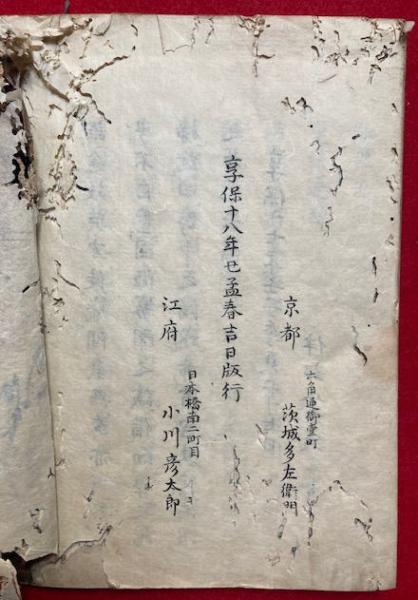 京都
六角通御幸町
茨城多左衛門
享保十八年丑孟春吉日版行
江府
日本橋南二町目
小川彦太郎